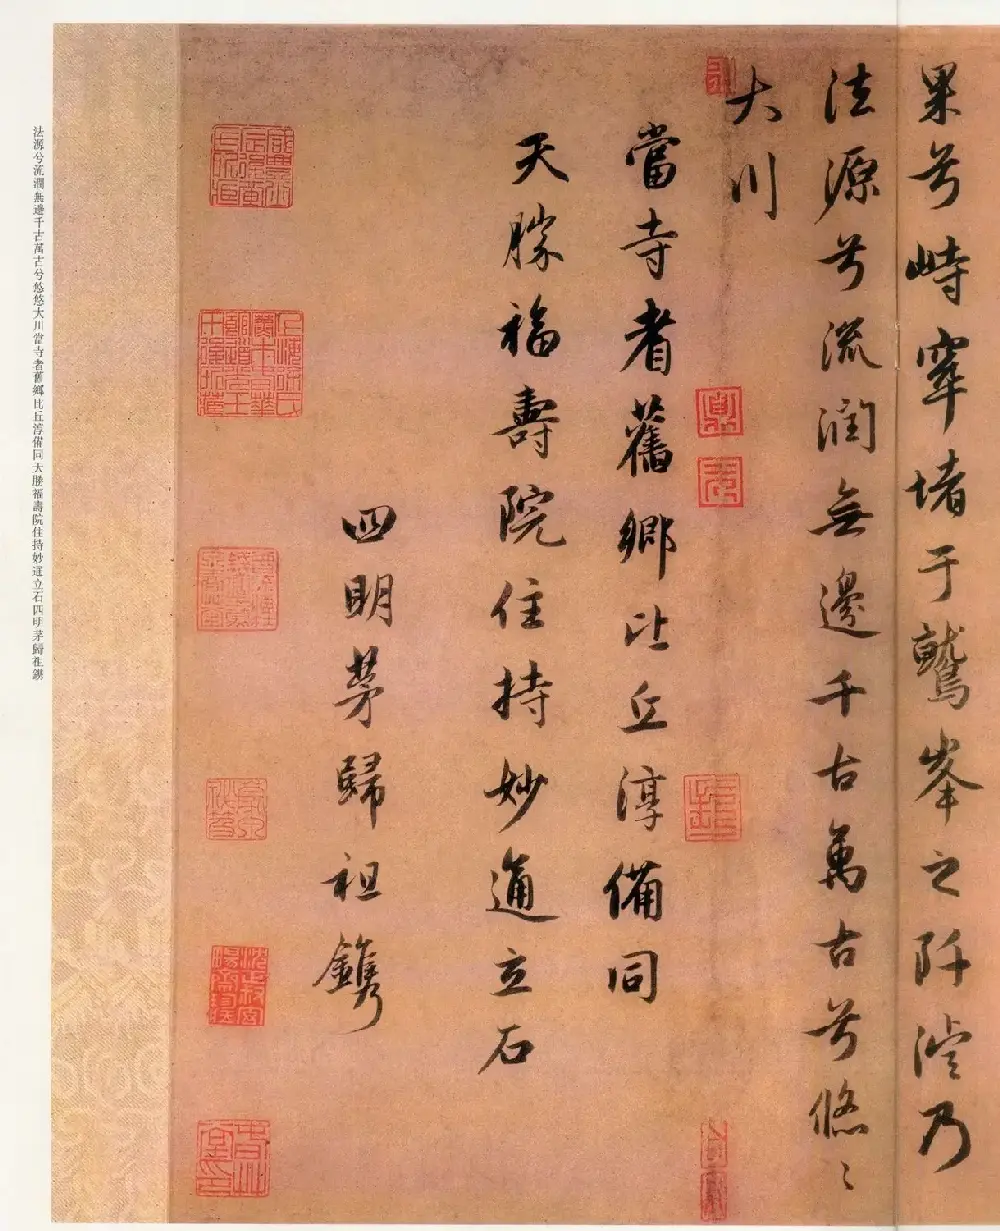 果兮峙窣堵于鷲峯之阡浚乃
法源兮流潤無邊千古萬古兮悠〻
大川
當寺者舊鄉比丘淳備同
天勝福壽院住持妙通立石
四明茅歸祖鐫
法源兮流潤無邊千古萬古兮悠悠大川當寺者舊鄉比丘淳備同天勝福壽院住持妙通立石四明茅歸祖鐫